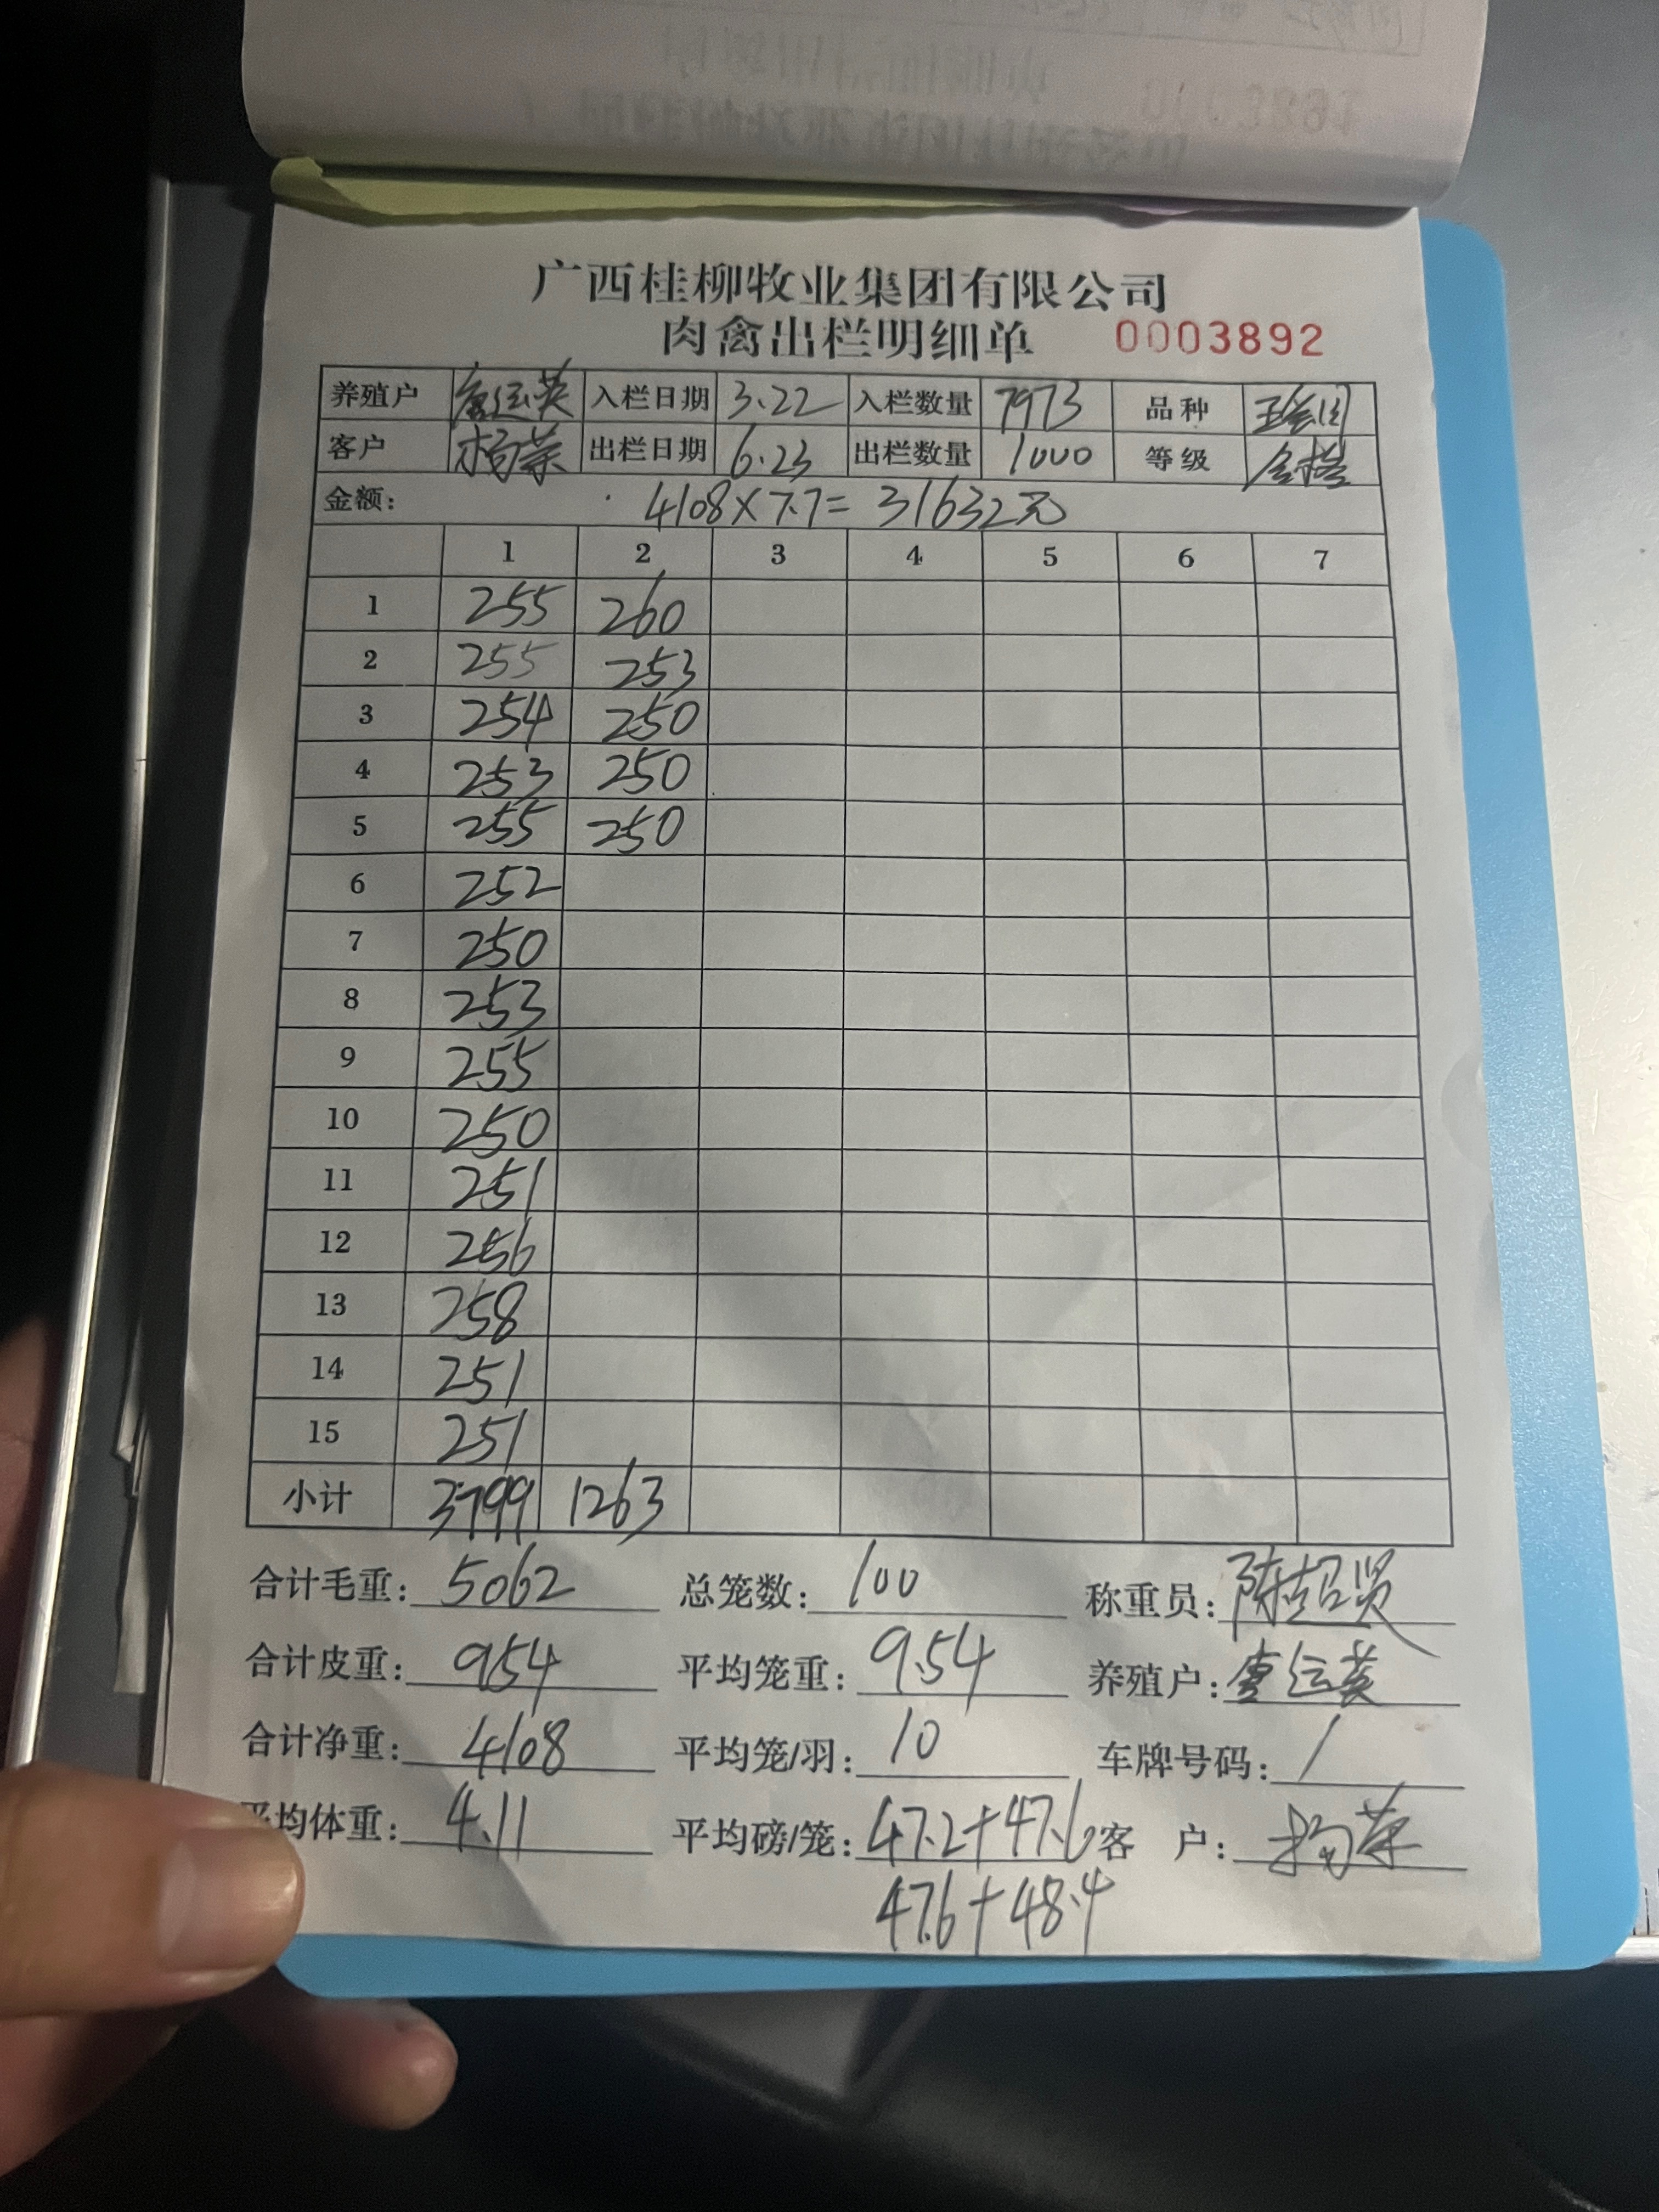 广西桂柳牧业集团有限公司
肉禽出栏明细单 0003892
养殖户 唐运英 入栏日期 3.22 入栏数量 7973 品种
客户 杨荣 出栏日期 6.23 出栏数量 1000 等级
金额: 4108×7.7= 31632元
1 2 3 4 5 6 7
1 255 260
2 255 253
3 254 250
4 253 250
5 255 250
6 252
7 250
8 253
9 255
10 250
11 251
12 256
13 258
14 251
15 251
小计 3799 1263
合计毛重: 5062 总笼数: 100 称重员: 陈超贤
合计皮重: 954 平均笼重: 9.54 养殖户: 唐运英
合计净重: 4108 平均笼/羽: 10 车牌号码: /
平均体重: 4.11 平均磅/笼: 47.2+47.6 客 户: 杨荣
47.6+48.4